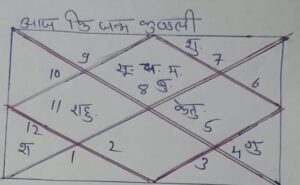 आज कि जन्म कुण्डली
शु. 7
9 सू. च. म.
10 8 बु. 6
11 राहु. केतु.
12 5
श 1 2 3 4 गु.